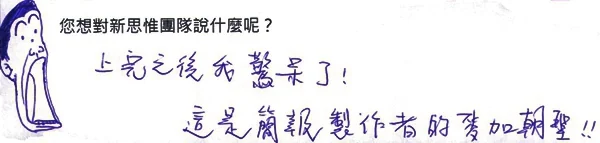 您想對新思惟團隊說什麼呢？
上完之後我驚呆了!
這是簡報製作者的麥加朝聖!!